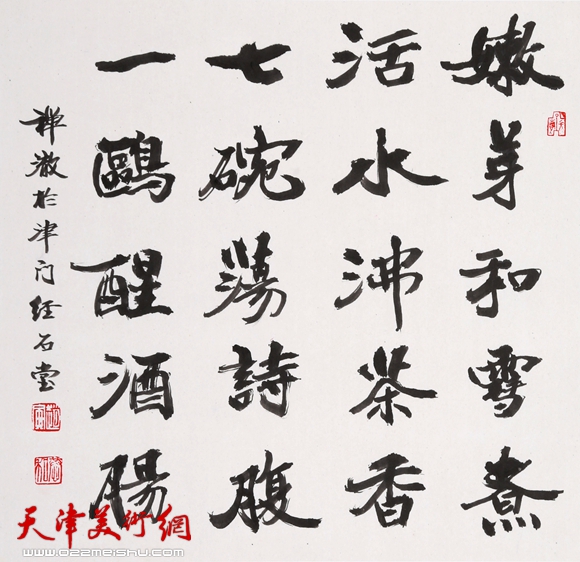 嫩芽和雪煮
活水沸茶香
七碗蕩詩腹
一鷗醒酒腸
禅於津门经石堂
天津美術網
www.022meishu.com